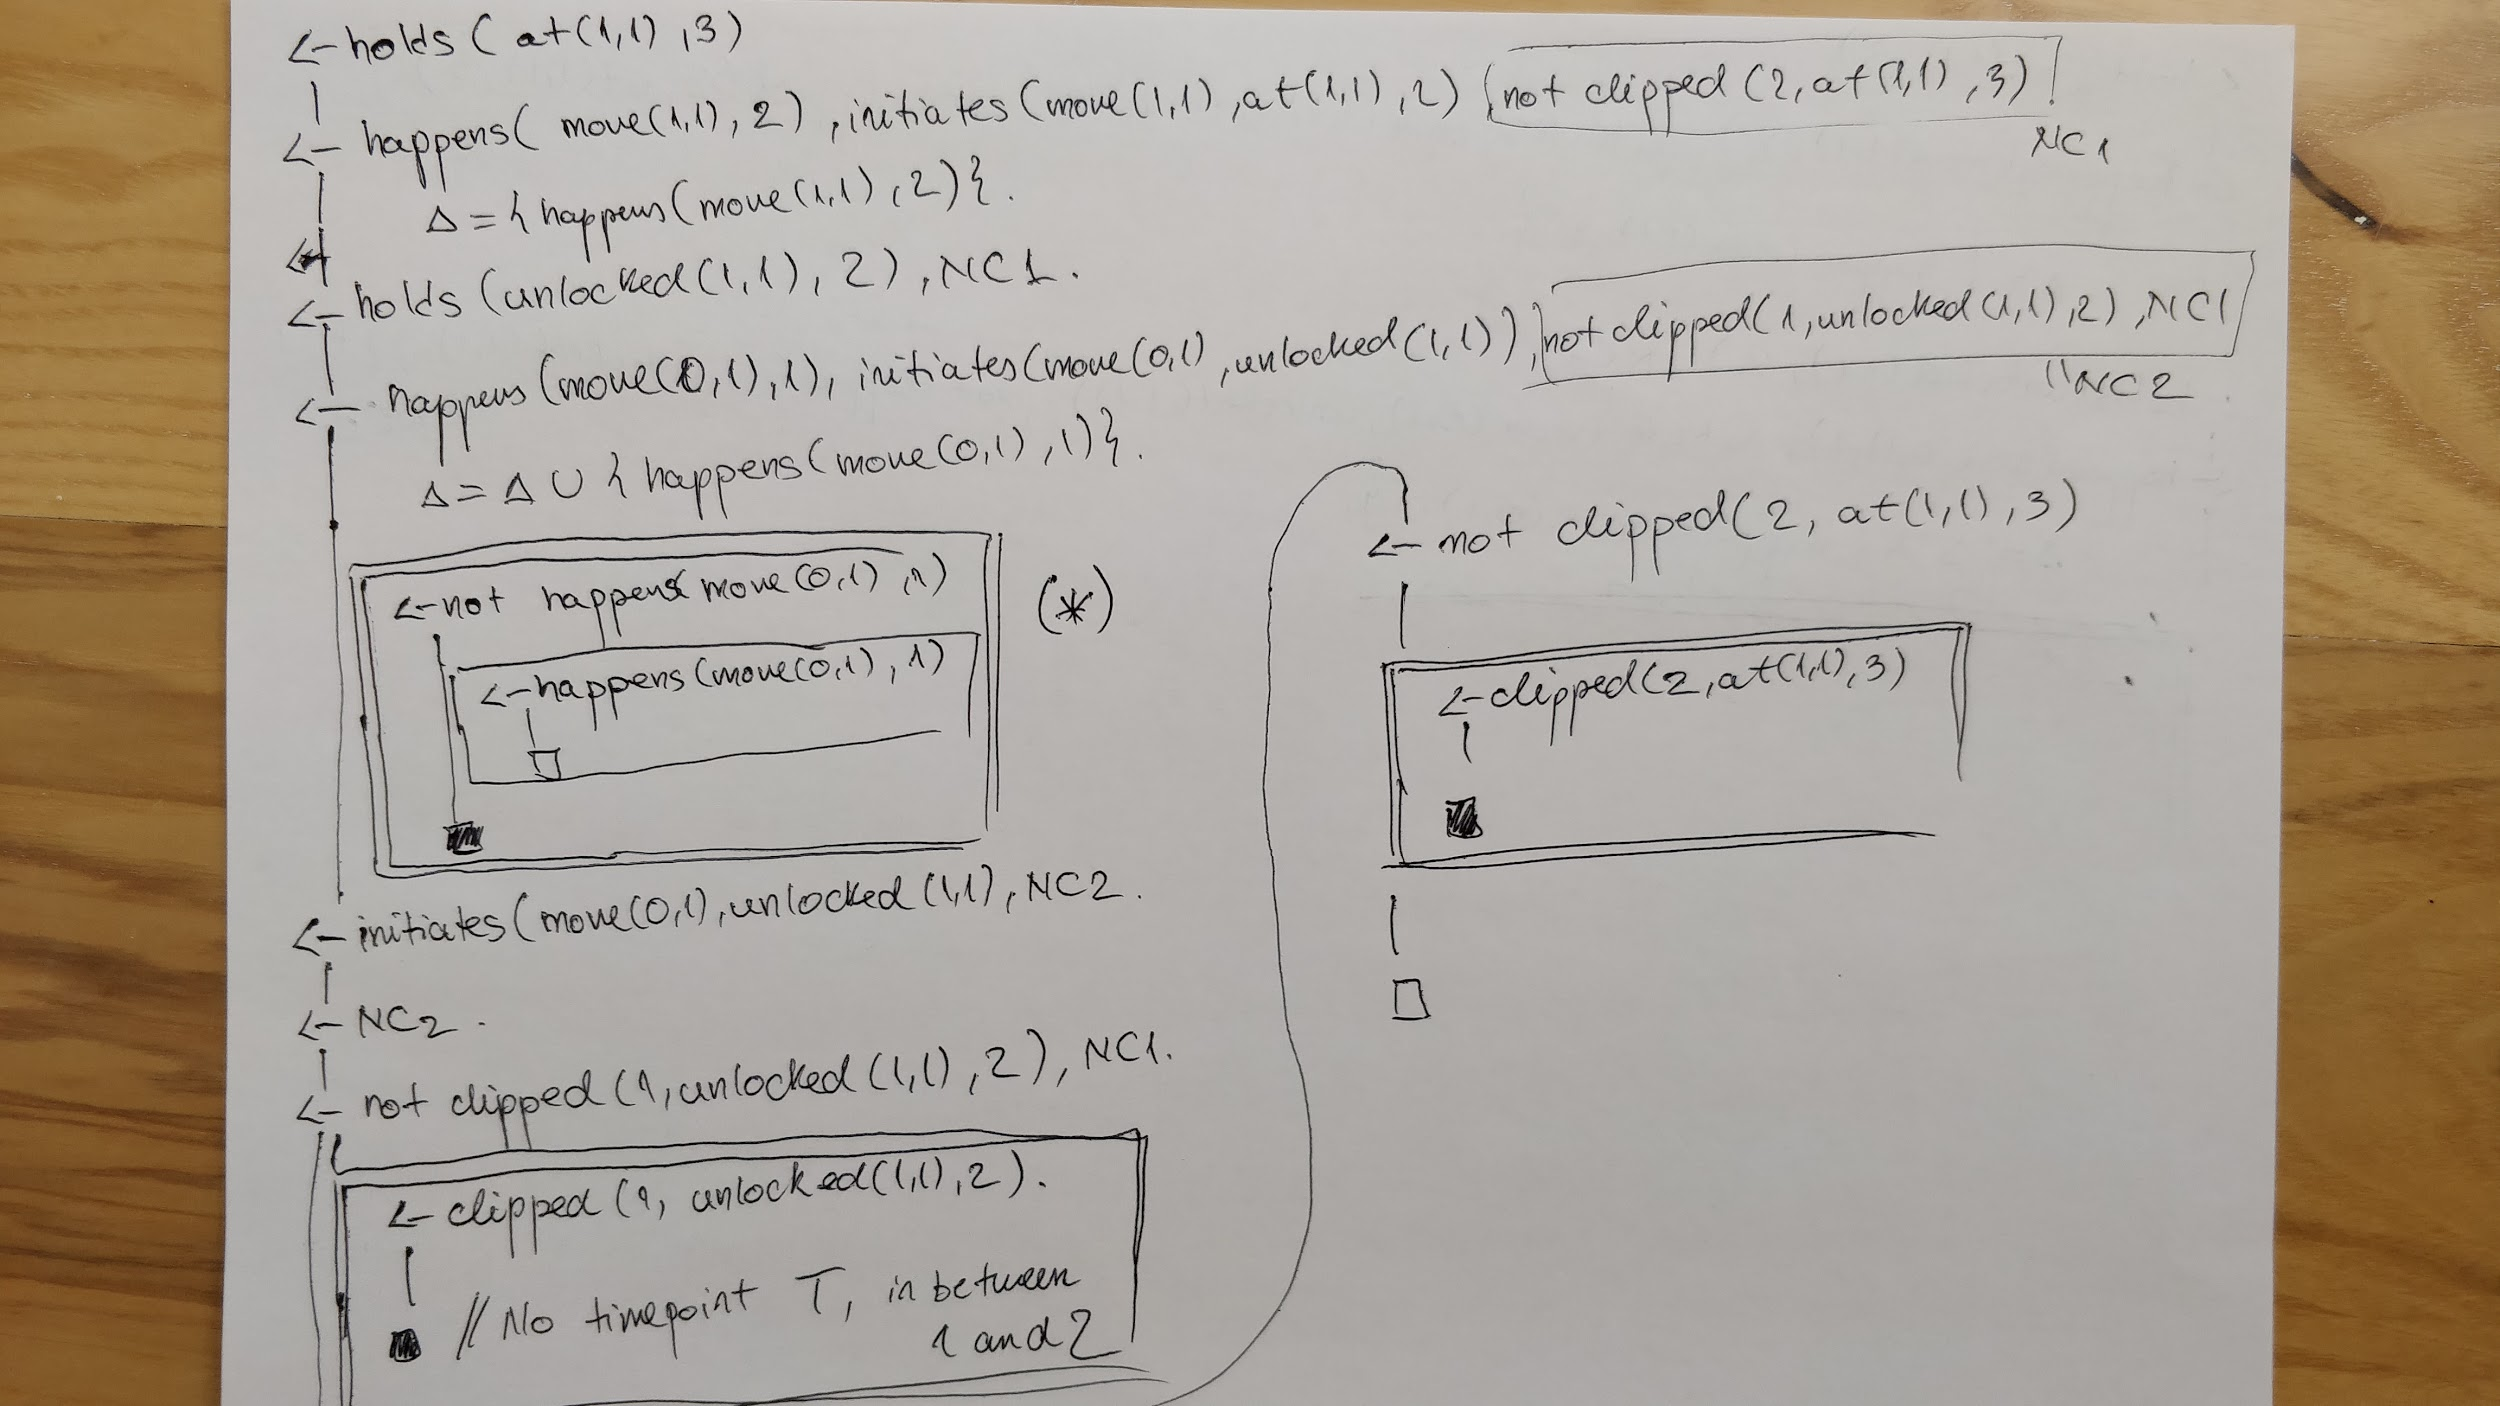 ← holds ( at(1,1) , 3)
← happens( move(1,1), 2) , initiates (move(1,1) , at(1,1) , 2) , not clipped (2, at(1,1) , 3)
NC1
Δ = { happens (move(1,1) , 2) }.
← holds (unlocked(1,1) , 2) , NC1.
← happens (move(0,1) , 1), initiates (move(0,1) , unlocked (1,1)) , not clipped( 1, unlocked (1,1) , 2) , NC1
" NC2
Δ = Δ ∪ { happens (move (0,1) , 1) }.
← not happens move (0,1) , 1)
(*)
← happens (move(0,1) , 1)
□
■
← initiates (move (0,1) , unlocked (1,1) , NC2.
← NC2.
← not clipped (1, unlocked (1,1) , 2) , NC1.
← clipped (1, unlocked(1,1) , 2).
■ // No timepoint T, in between
1 and 2
← not clipped (2, at(1,1) , 3)
← clipped (2, at(1,1), 3)
■
□